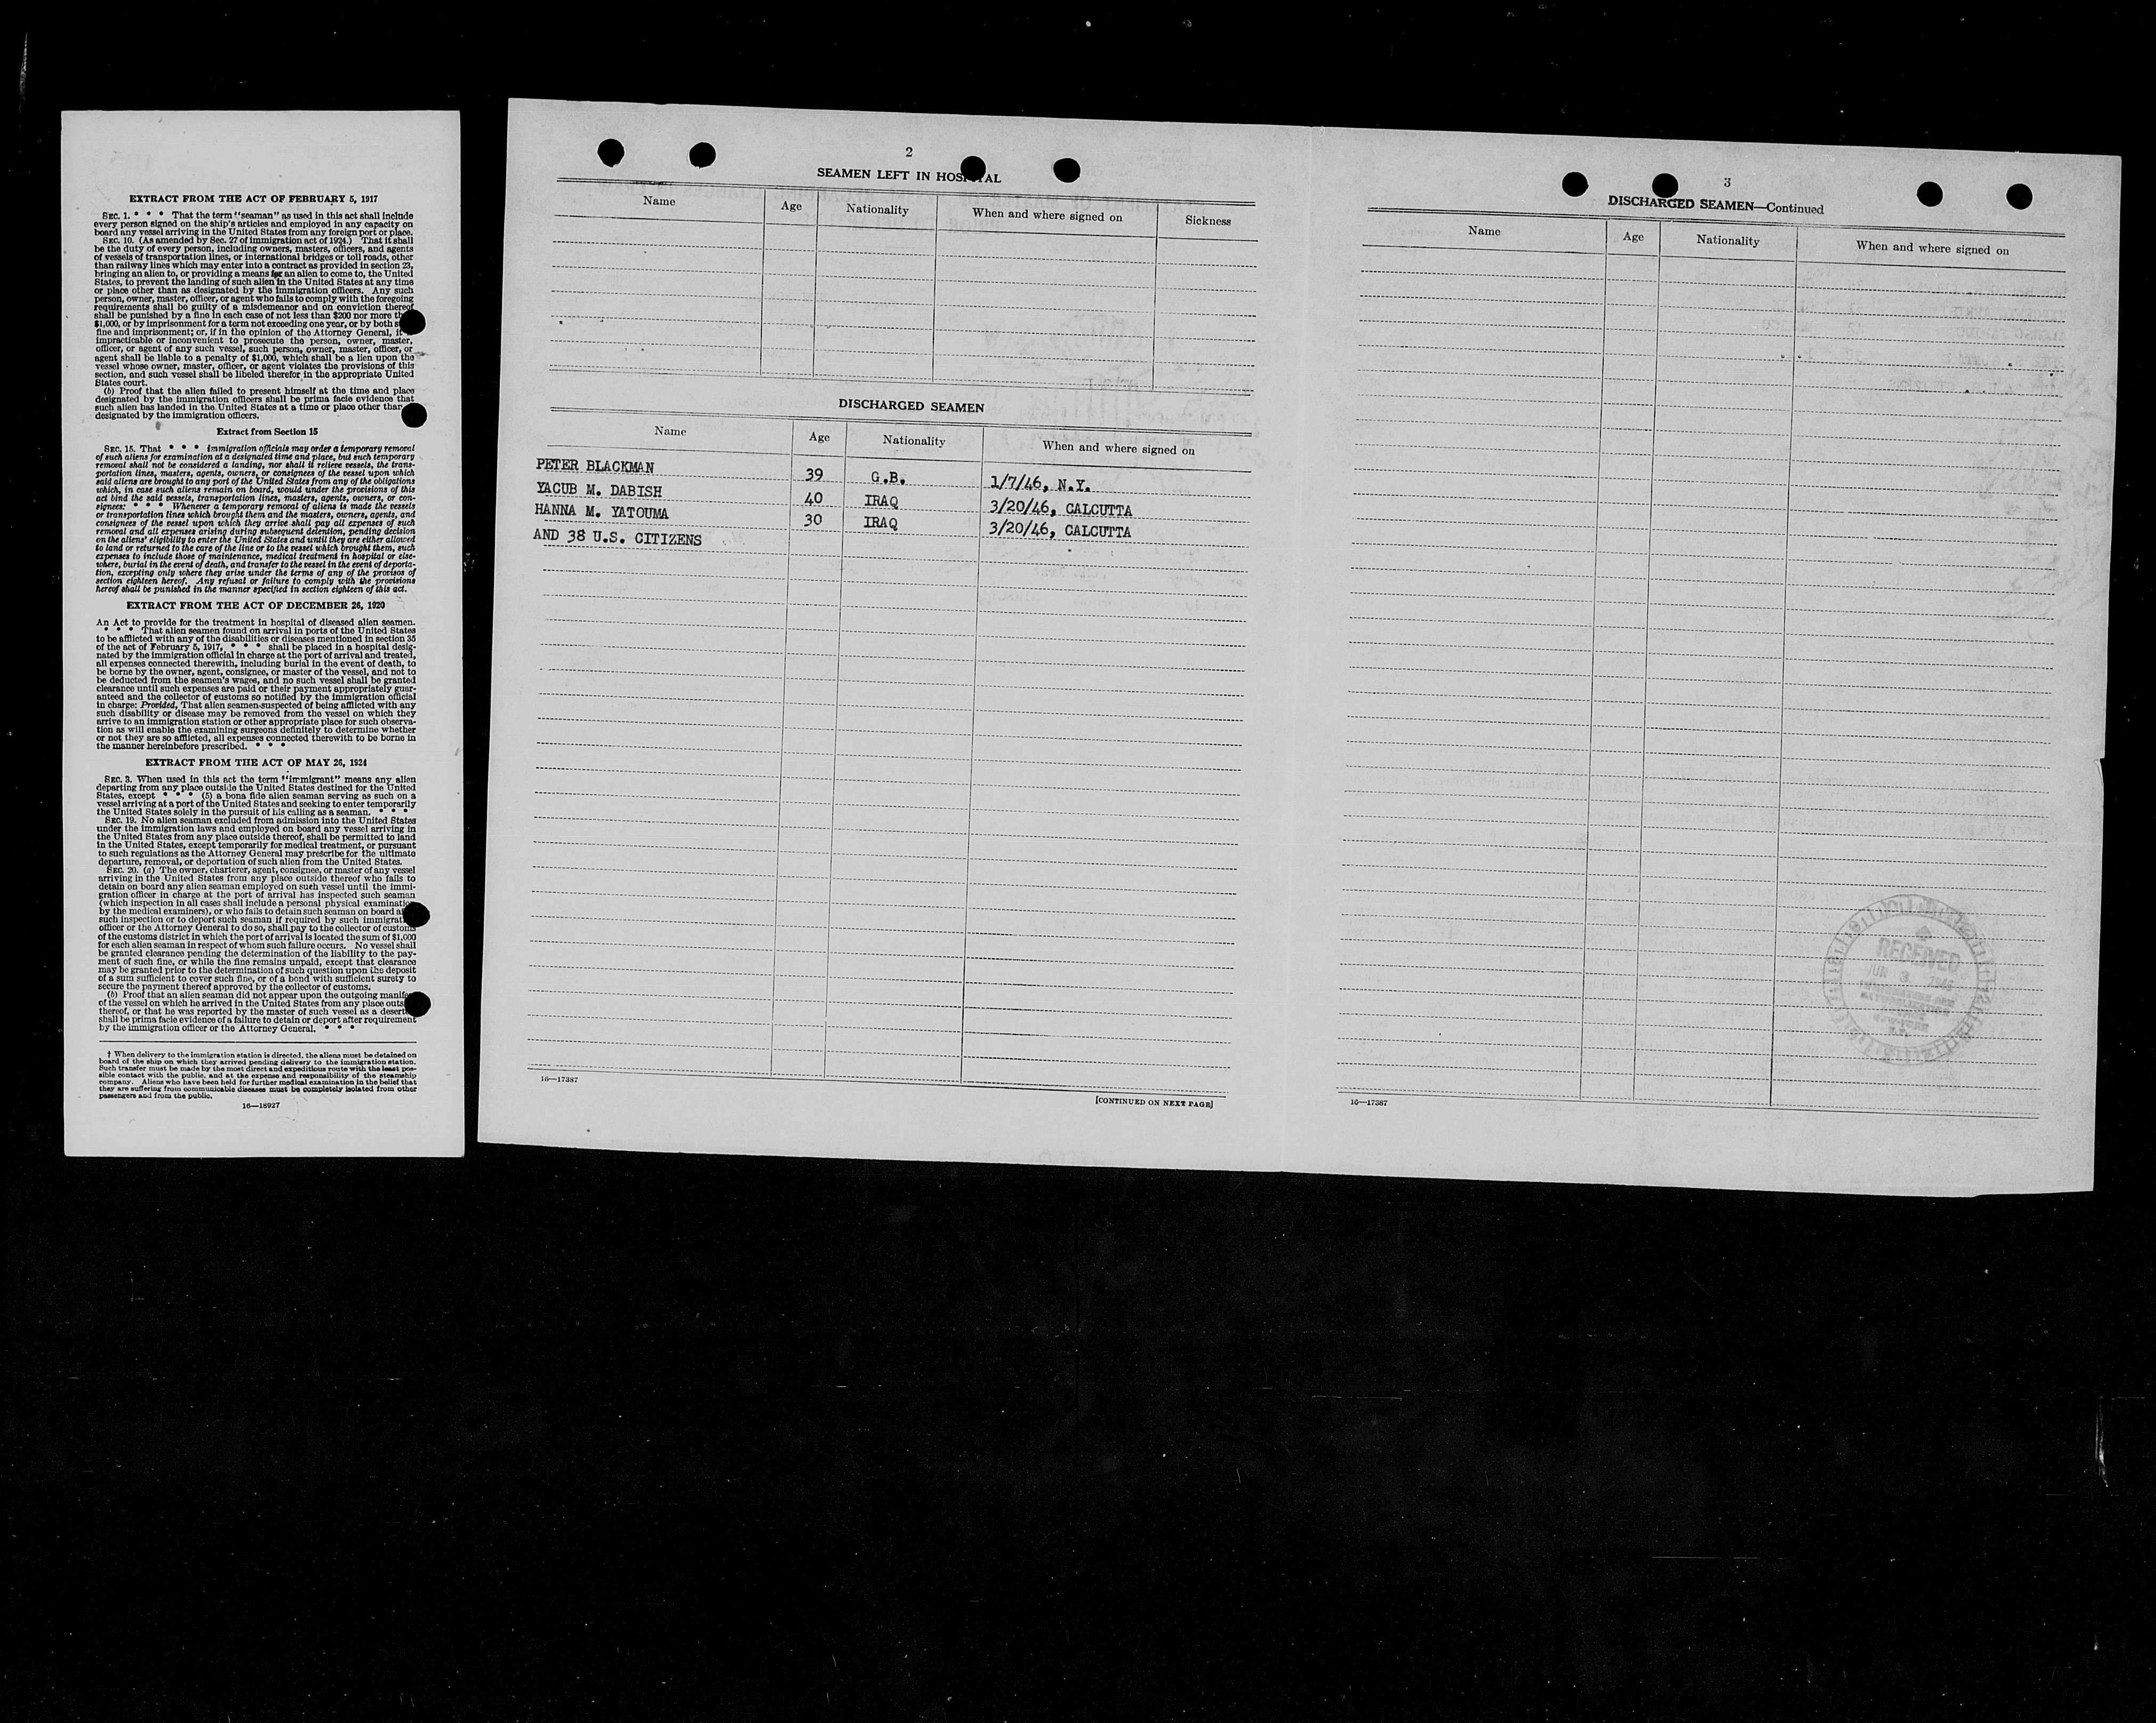 EXTRACT FROM THE ACT OF FEBRUARY 5, 1917
SEC. 1. * * * That the term "seaman" as used in this act shall include
every person signed on the ship's articles and employed in any capacity on
board any vessel arriving in the United States from any foreign port or place.
SEC. 10. (As amended by Sec. 27 of immigration act of 1924.) That it shall
be the duty of every person, including owners, masters, officers, and agents
of vessels of transportation lines, or international bridges or toll roads, other
than railway lines which may enter into a contract as provided in section 23,
bringing an alien to, or providing a means for an alien to come to, the United
States, to prevent the landing of such alien in the United States at any time
or place other than as designated by the immigration officers. Any such
person, owner, master, officer, or agent who fails to comply with the foregoing
requirements shall be guilty of a misdemeanor and on conviction thereof
shall be punished by a fine in each case of not less than $200 nor more th
$1,000, or by imprisonment for a term not exceeding one year, or by both s
fine and imprisonment; or, if in the opinion of the Attorney General, it
impracticable or inconvenient to prosecute the person, owner, master,
officer, or agent of any such vessel, such person, owner, master, officer, or
agent shall be liable to a penalty of $1,000, which shall be a lien upon the
vessel whose owner, master, officer, or agent violates the provisions of this
section, and such vessel shall be libeled therefor in the appropriate United
States court.
(b) Proof that the alien failed to present himself at the time and place
designated by the immigration officers shall be prima facie evidence that
such alien has landed in the United States at a time or place other than
designated by the immigration officers.
Extract from Section 15
SEC. 15. That * * * immigration officials may order a temporary removal
of such aliens for examination at a designated time and place, but such temporary
removal shall not be considered a landing, nor shall it relieve vessels, the trans-
portation lines, masters, agents, owners, or consignees of the vessel upon which
said aliens are brought to any port of the United States from any of the obligations
which, in case such aliens remain on board, would under the provisions of this
act bind the said vessels, transportation lines, masters, agents, owners, or con-
signees: * * * Whenever a temporary removal of aliens is made the vessels
or transportation lines which brought them and the masters, owners, agents, and
consignees of the vessel upon which they arrive shall pay all expenses of such
removal and all expenses arising during subsequent detention, pending decision
on the aliens' eligibility to enter the United States and until they are either allowed
to land or returned to the care of the line or to the vessel which brought them, such
expenses to include those of maintenance, medical treatment in hospital or else-
where, burial in the event of death, and transfer to the vessel in the event of deporta-
tion, excepting only where they arise under the terms of any of the provisos of
section eighteen hereof. Any refusal or failure to comply with the provisions
hereof shall be punished in the manner specified in section eighteen of this act.
EXTRACT FROM THE ACT OF DECEMBER 26, 1920
An Act to provide for the treatment in hospital of diseased alien seamen.
* * * That alien seamen found on arrival in ports of the United States
to be afflicted with any of the disabilities or diseases mentioned in section 35
of the act of February 5, 1917, * * * shall be placed in a hospital desig-
nated by the immigration official in charge at the port of arrival and treated,
all expenses connected therewith, including burial in the event of death, to
be borne by the owner, agent, consignee, or master of the vessel, and not to
be deducted from the seamen's wages, and no such vessel shall be granted
clearance until such expenses are paid or their payment appropriately guar-
anteed and the collector of customs so notified by the immigration official
in charge: Provided, That alien seamen suspected of being afflicted with any
such disability or disease may be removed from the vessel on which they
arrive to an immigration station or other appropriate place for such observa-
tion as will enable the examining surgeons definitely to determine whether
or not they are so afflicted, all expenses connected therewith to be borne in
the manner hereinbefore prescribed. * * *
EXTRACT FROM THE ACT OF MAY 26, 1924
SEC. 3. When used in this act the term "immigrant" means any alien
departing from any place outside the United States destined for the United
States, except * * * (5) a bona fide alien seaman serving as such on a
vessel arriving at a port of the United States and seeking to enter temporarily
the United States solely in the pursuit of his calling as a seaman. * * *
SEC. 19. No alien seaman excluded from admission into the United States
under the immigration laws and employed on board any vessel arriving in
the United States from any place outside thereof, shall be permitted to land
in the United States, except temporarily for medical treatment, or pursuant
to such regulations as the Attorney General may prescribe for the ultimate
departure, removal, or deportation of such alien from the United States.
SEC. 20. (a) The owner, charterer, agent, consignee, or master of any vessel
arriving in the United States from any place outside thereof who fails to
detain on board any alien seaman employed on such vessel until the immi-
gration officer in charge at the port of arrival has inspected such seaman
(which inspection in all cases shall include a personal physical examinatio
by the medical examiners), or who fails to detain such seaman on board a
such inspection or to deport such seaman if required by such immigrat
officer or the Attorney General to do so, shall pay to the collector of customs
of the customs district in which the port of arrival is located the sum of $1,000
for each alien seaman in respect of whom such failure occurs. No vessel shall
be granted clearance pending the determination of the liability to the pay-
ment of such fine, or while the fine remains unpaid, except that clearance
may be granted prior to the determination of such question upon the deposit
of a sum sufficient to cover such fine, or of a bond with sufficient surety to
secure the payment thereof approved by the collector of customs.
(b) Proof that an alien seaman did not appear upon the outgoing manife
of the vessel on which he arrived in the United States from any place outs
thereof, or that he was reported by the master of such vessel as a desert
shall be prima facie evidence of a failure to detain or deport after requirement
by the immigration officer or the Attorney General. * * *
† When delivery to the immigration station is directed, the aliens must be detained on
board of the ship on which they arrived pending delivery to the immigration station.
Such transfer must be made by the most direct and expeditious route with the least pos-
sible contact with the public, and at the expense and responsibility of the steamship
company. Aliens who have been held for further medical examination in the belief that
they are suffering from communicable diseases must be completely isolated from other
passengers and from the public.
16—18927
2
SEAMEN LEFT IN HOSPITAL
Name Age Nationality When and where signed on Sickness
DISCHARGED SEAMEN
Name Age Nationality When and where signed on
PETER BLACKMAN 39 G.B. 1/7/46, N.Y.
YACUB M. DABISH 40 IRAQ 3/20/46, CALCUTTA
HANNA M. YATOUMA 30 IRAQ 3/20/46, CALCUTTA
AND 38 U.S. CITIZENS
16—17387
[CONTINUED ON NEXT PAGE]
3
DISCHARGED SEAMEN—Continued
Name Age Nationality When and where signed on
RECEIVED
JUN 3 1946
16—17387